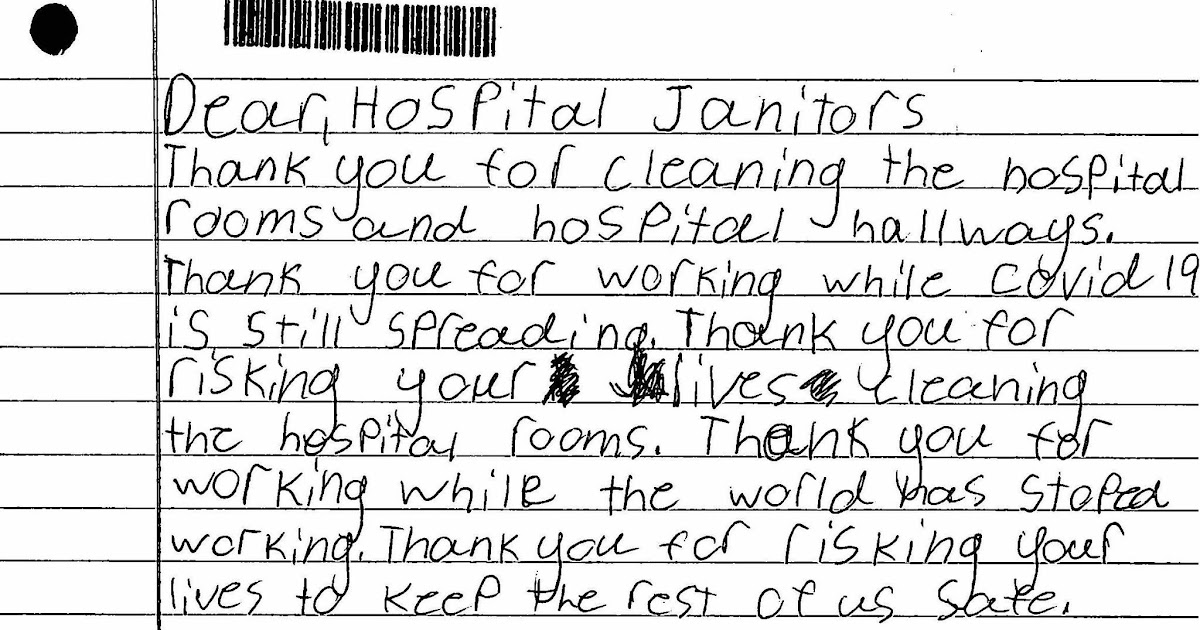 Dear, Hospital Janitors
Thank you for cleaning the hospital
rooms and hospital hallways.
Thank you for working while Covid 19
is still spreading. Thank you for
risking your lives cleaning
the hospital rooms. Thank you for
working while the world has stoped
working. Thank you for risking your
lives to keep the rest of us safe.